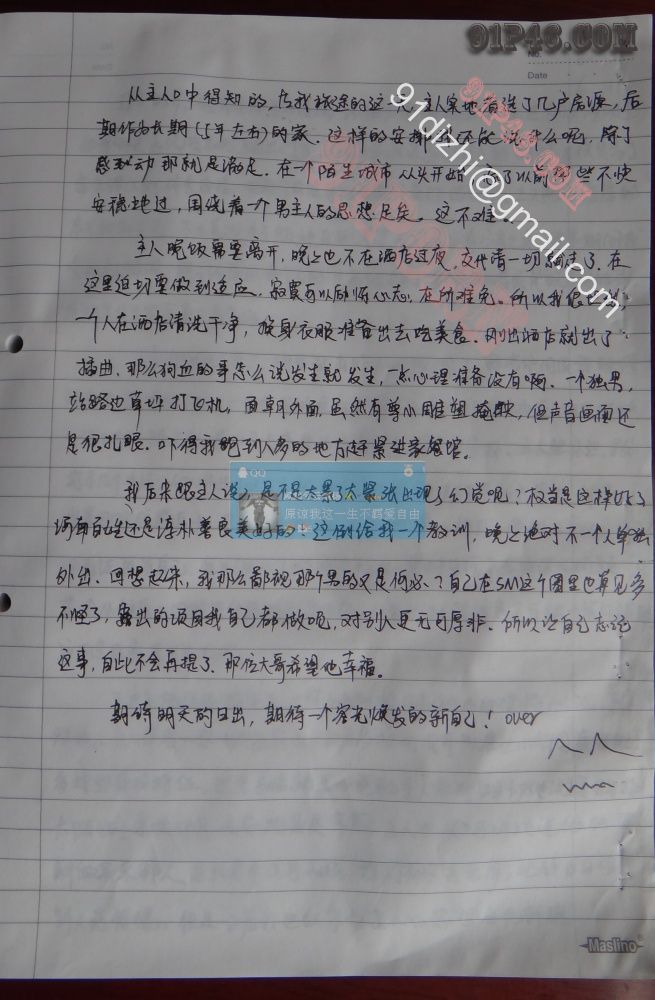 91P46.COM
No.
Date
从主人口中得知的,在我旅途的这一 主人实地看选了几户房源,后
期作为长期(5年左右)的家。这样的安排 还能说什么呢,除了
感动 那就是满足。在一个陌生城市从头开始 了以前那些不快
安稳地过,围绕着一个男主人的思想足矣。这不难
91dizhi@gmail.com
主人晚饭需要离开,晚上也不在酒店过夜,交代清一切 走了.在
这里迫切要做到适应,寂寞可以励炼心志,在所难免。所以我很
一个人在酒店清洗干净,换身衣服准备出去吃美食。刚出酒店就出了
插曲,那么狗血的事怎么说发生就发生,一点心理准备没有啊。一个猥男,
站路边草坪打飞机,面朝外面,虽然有尊小雕塑掩 ,但声音画面还
是很扎眼。吓得我跑到人多的地方赶紧进家餐馆。
QQ
原谅我这一生不羁爱自由
我后来跟主人说,是不是太累了太紧张出现了幻觉呢?权当是这样好了
河南 还是淳朴善良美好的!这倒给我一个教训,晚上绝对不一个人单独
外出。回想起来,我那么鄙视那个男的又是何必?自己在SM这个圈里也算见多
不怪了,露出的项目我自己都做呢,对别人更无可厚非。所以让自己忘记
这事,自此不会再提了。那位大哥希望他幸福。
期待明天的日出,期待一个容光焕发的新自己!over
Maslino